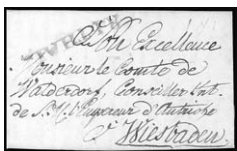 A Son Excellence
Monsieur le Comte de
Walderdorf, Conseiller Int.
de S. M. l'Empereur d'Autriche
à Wiesbaden.